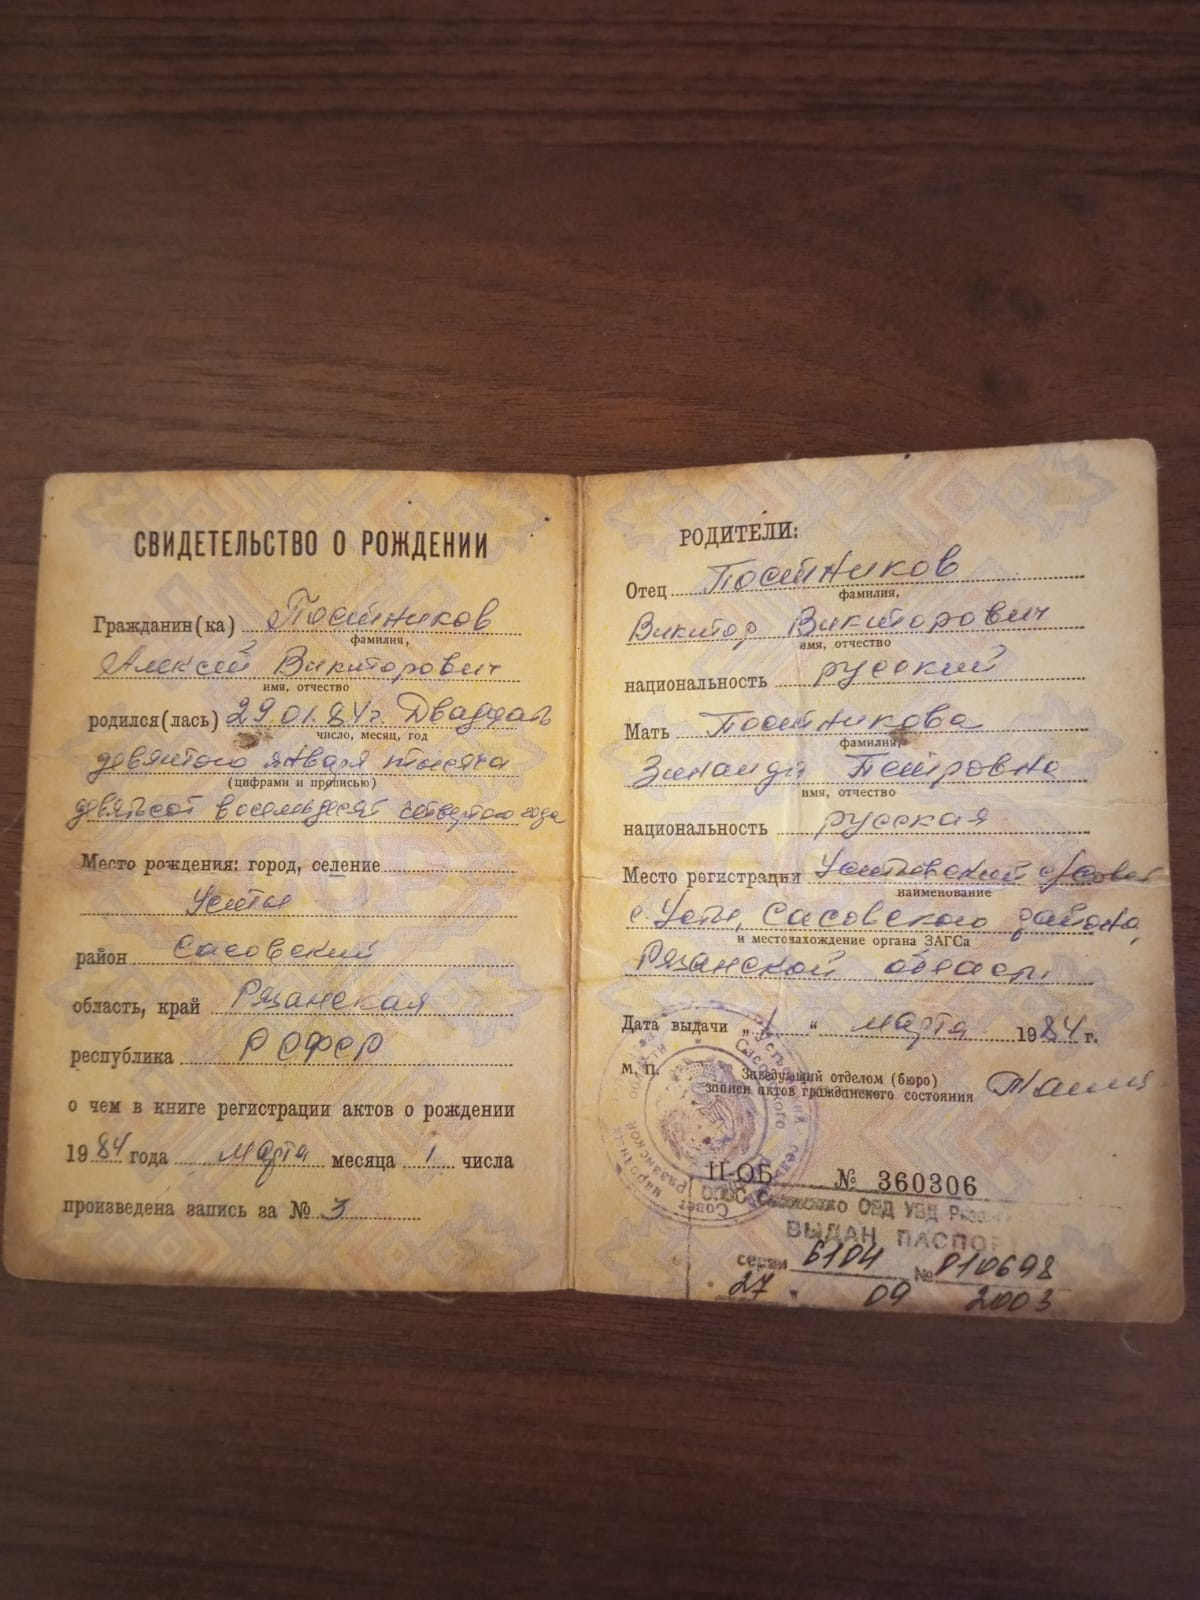 СВИДЕТЕЛЬСТВО О РОЖДЕНИИ
Гражданин(ка) Постников
фамилия,
Алексей Викторович
имя, отчество
родился(лась) 29.01.84г. Двадцать
число, месяц, год
девятого января тысяча
(цифрами и прописью)
девятьсот восемьдесят четвертого года
Место рождения: город, селение
Устье
район Сасовский
область, край Рязанская
республика РСФСР
о чем в книге регистрации актов о рождении
1984 года марта месяца 1 числа
произведена запись за № 3
РОДИТЕЛИ:
Отец Постников
фамилия,
Виктор Викторович
имя, отчество
национальность русский
Мать Постникова
фамилия,
Зинаида Петровна
имя, отчество
национальность русская
Место регистрации Устьевский с/совет
наименование
с. Устье, Сасовского района,
и местонахождение органа ЗАГСа
Рязанской области
Дата выдачи „1“ марта 1984 г.
М. П.
Заведующий отделом (бюро)
записи актов гражданского состояния
II-ОБ № 360306
Сасовского ОВД УВД
ВЫДАН ПАСПОРТ
серии 6104 № 010698
27 09 2003